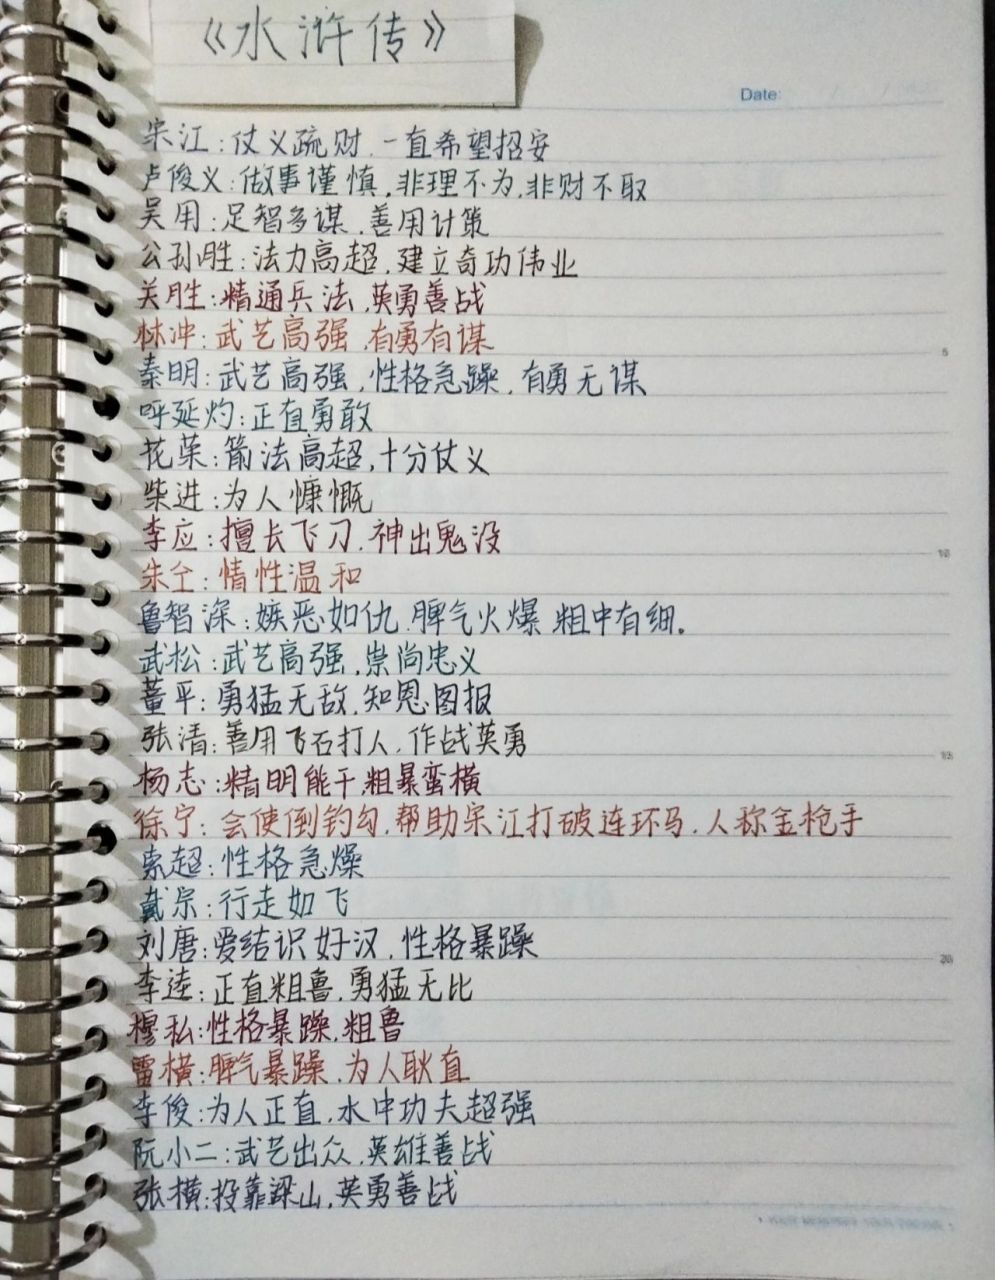 《水浒传》
Date:
宋江:仗义疏财,一直希望招安
卢俊义:做事谨慎,非理不为,非财不取
吴用:足智多谋,善用计策
公孙胜:法力高超,建立奇功伟业
关胜:精通兵法,英勇善战
林冲:武艺高强,有勇有谋
5
秦明:武艺高强,性格急躁,有勇无谋
呼延灼:正直勇敢
花荣:箭法高超,十分仗义
柴进:为人慷慨
李应:擅长飞刀,神出鬼没
10
朱仝:情性温和
鲁智深:嫉恶如仇,脾气火爆,粗中有细。
武松:武艺高强,崇尚忠义
董平:勇猛无敌,知恩图报
张清:善用飞石打人,作战英勇
15
杨志:精明能干,粗暴蛮横
徐宁:会使倒钓勾,帮助宋江打破连环马,人称金枪手
索超:性格急燥
戴宗:行走如飞
刘唐:爱结识好汉,性格暴躁
20
李逵:正直粗鲁,勇猛无比
穆私:性格暴躁,粗鲁
雷横:脾气暴躁,为人耿直
李俊:为人正直,水中功夫超强
阮小二:武艺出众,英雄善战
张横:投靠梁山,英勇善战